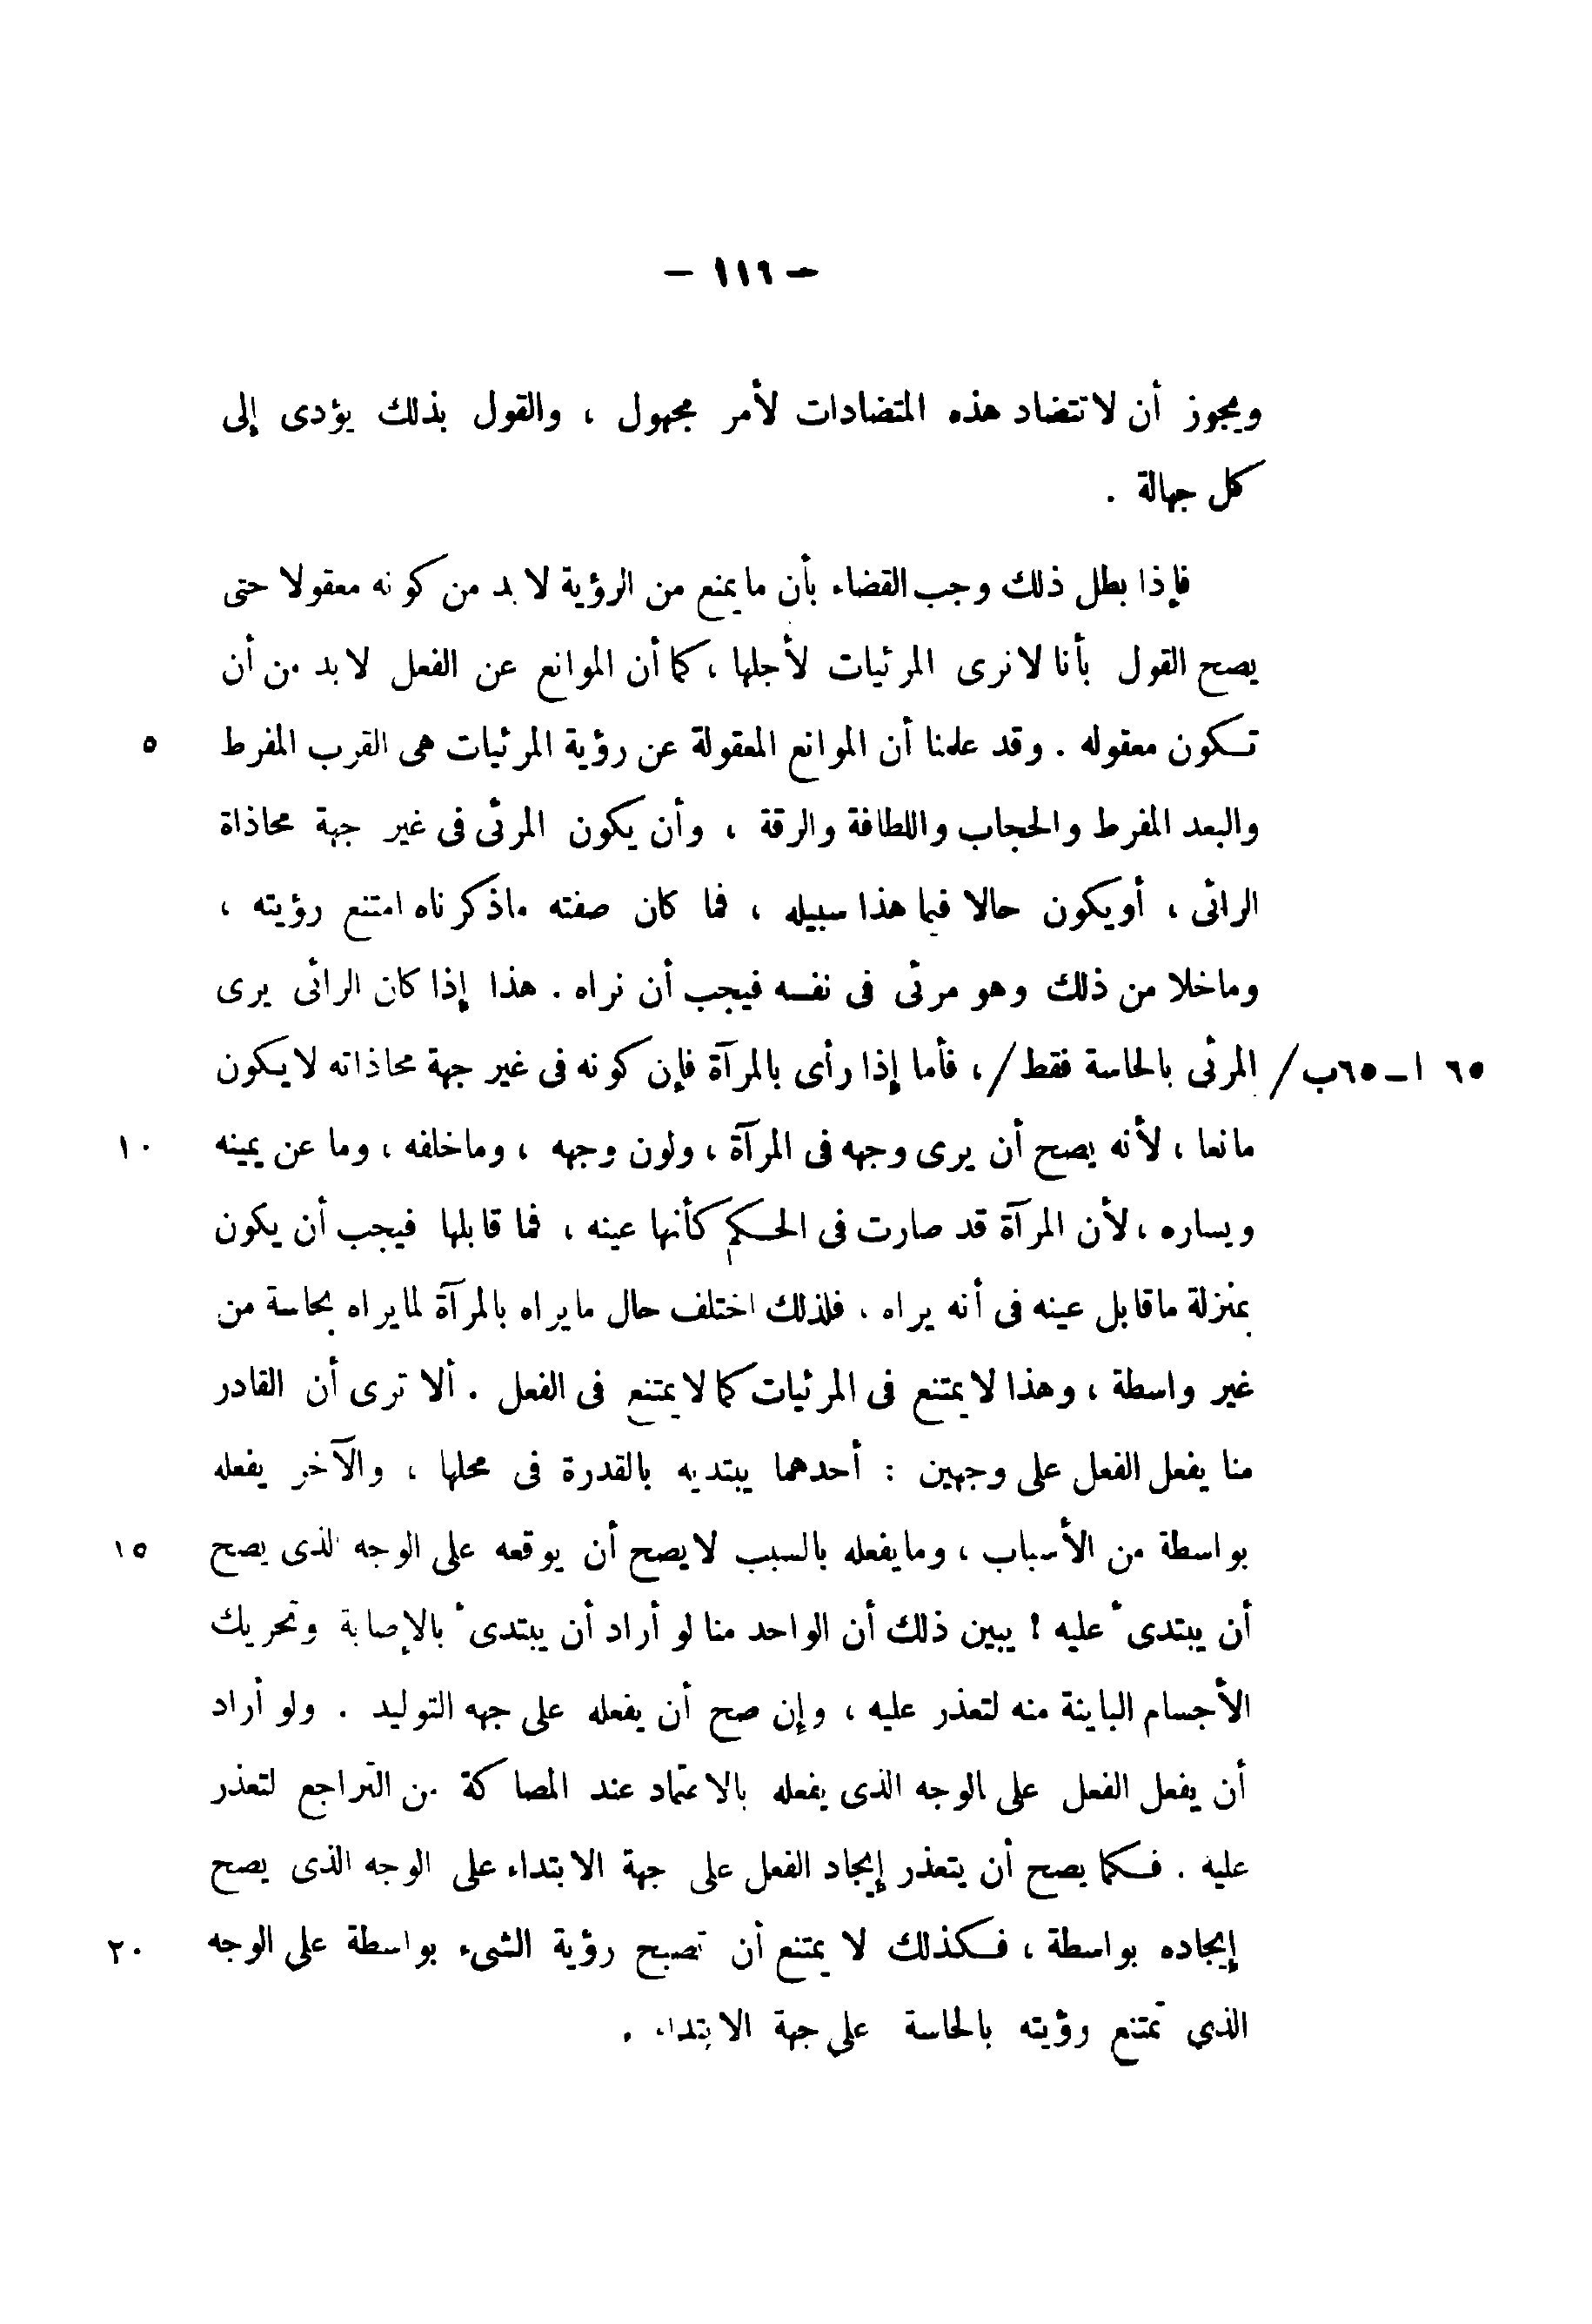 — ١١٦ —
ويجوز أن لا تتضاد هذه المتضادات لأمر مجهول ، والقول بذلك يؤدى إلى
كل جهالة .
فإذا بطل ذلك وجب القضاء بأن ما يمنع من الرؤية لا بد من كونه معقولا حتى
يصح القول بأنا لا نرى المرئيات لأجلها ، كما أن الموانع عن الفعل لا بد من أن
تكون معقوله . وقد علمنا أن الموانع المعقولة عن رؤية المرئيات هى القرب المفرط ٥
والبعد المفرط والحجاب واللطافة والرقة ، وأن يكون المرئى فى غير جهة محاذاة
الرائى ، أو يكون حالا فيما هذا سبيله ، فما كان صفته ماذكرناه امتنع رؤيته ،
وماخلا من ذلك وهو مرئى فى نفسه فيجب أن نراه . هذا إذا كان الرائى يرى
٦٥ ا – ٦٥ب / المرئى بالحاسة فقط/، فأما إذا رأى بالمرآة فإن كونه فى غير جهة محاذاته لا يكون
مانعا ، لأنه يصح أن يرى وجهه فى المرآة ، ولون وجهه ، وماخلفه ، وما عن يمينه ١٠
ويساره ، لأن المرآة قد صارت فى الحكم كأنها عينه ، فما قابلها فيجب أن يكون
بمنزلة ماقابل عينه فى أنه يراه . فلذلك اختلف حال مايراه بالمرآة لمايراه بحاسة من
غير واسطة ، وهذا لا يمتنع فى المرئيات كما لا يمتنع فى الفعل . ألا ترى أن القادر
منا يفعل الفعل على وجهين : أحدهما يبتديه بالقدرة فى محلها ، والآخر يفعله
بواسطة من الأسباب ، ومايفعله بالسبب لا يصح أن يوقعه على الوجه الذى يصح ١٥
أن يبتدىء عليه ! يبين ذلك أن الواحد منا لو أراد أن يبتدىء بالإصابة وتحريك
الأجسام الباينة منه لتعذر عليه ، وإن صح أن يفعله على جهه التوليد . ولو أراد
أن يفعل الفعل على الوجه الذى يفعله بالاعتماد عند المصاكة من التراجع لتعذر
عليه . فكما يصح أن يتعذر إيجاد الفعل على جهة الابتداء على الوجه الذى يصح
إيجاده بواسطة ، فكذلك لا يمتنع أن تصبح رؤية الشىء بواسطة على الوجه ٢٠
الذي تمتنع رؤيته بالحاسة على جهة الابتداء .